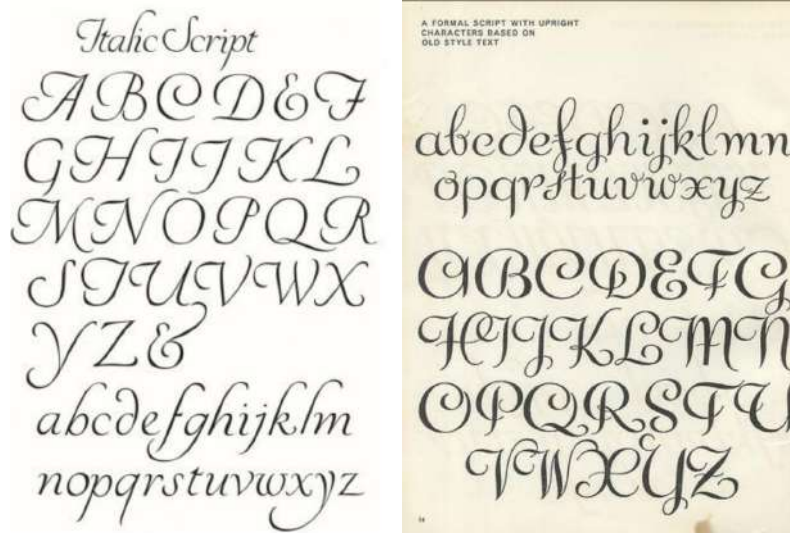 Italic Script
ABCDEF
GHIJKL
MNOPQR
STUVWX
YZ&
abcdefghijklm
nopqrstuvwxyz
A FORMAL SCRIPT WITH UPRIGHT
CHARACTERS BASED ON
OLD STYLE TEXT
abcdefghijklmn
opqrstuvwxyz
ABCDEFG
HIJKLMN
OPQRSTU
VWXYZ